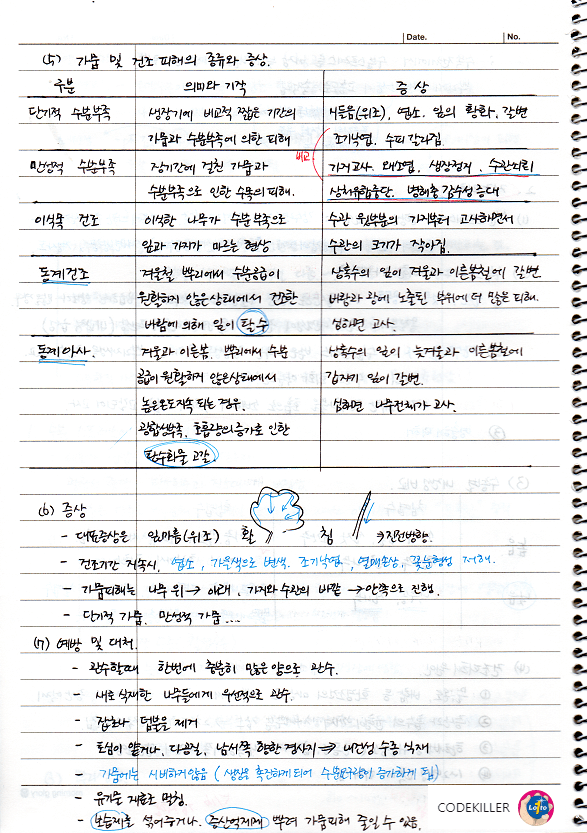 Date. No.
(5) 가뭄 및 건조 피해의 종류와 증상.
구분 의미와 기작 증상
단기적 수분부족 생장기에 비교적 짧은 기간의 시들음(위조), 엽소. 잎의 황화, 갈변
가뭄과 수분부족에 의한 피해 조기낙엽. 수피 갈라짐.
만성적 수분부족 장기간에 걸친 가뭄과 비교 가지고사. 왜소엽. 생장정지. 수관쇠퇴
수분부족으로 인한 수목의 피해. 상처유합중단. 병해충 감수성 증대
이식목 건조 이식한 나무가 수분부족으로 수관 윗부분의 가지부터 고사하면서
잎과 가지가 마르는 현상 수관의 크기가 작아짐.
동계건조 겨울철 뿌리에서 수분공급이 상록수의 잎이 겨울과 이른봄철에 갈변.
원활하지 않은 상태에서 건조한 바람과 광에 노출된 부위에 더 많은 피해.
바람에 의해 잎이 탈수 심하면 고사.
동계아사. 겨울과 이른봄. 뿌리에서 수분 상록수의 잎이 늦겨울과 이른봄철에
공급이 원활하지 않은상태에서 갑자기 잎이 갈변.
높은온도지속 되는 경우. 심하면 나무전체가 고사.
광합성부족, 호흡량의증가로 인한
탄수화물 고갈.
(6) 증상
- 대표증상은 잎마름(위조) 활 침 → 진전방향.
- 건조기간 지속시, 엽소, 가을색으로 변색. 조기낙엽, 열매손상, 꽃눈형성 저해.
- 가뭄피해는 나무 위 → 아래, 가지와 수관의 바깥 → 안쪽으로 진행.
- 단기적 가뭄, 만성적 가뭄....
(7) 예방 및 대처.
- 관수할때 한번에 충분히 많은양으로 관수.
- 새로 식재한 나무들에게 우선적으로 관수.
- 잡초나 덤불은 제거
- 토심이 얕거나, 다공질, 남서쪽 향한 경사지 ⇒ 내건성 수종 식재
- 가뭄에는 시비하지않음 (생장을 촉진하게되어 수분요구량이 증가하게 됨)
- 유기물 재료로 멀칭.
- 보습제를 섞어주거나. 증산억제제 뿌려 가뭄피해 줄일 수 있음.
CODEKILLER